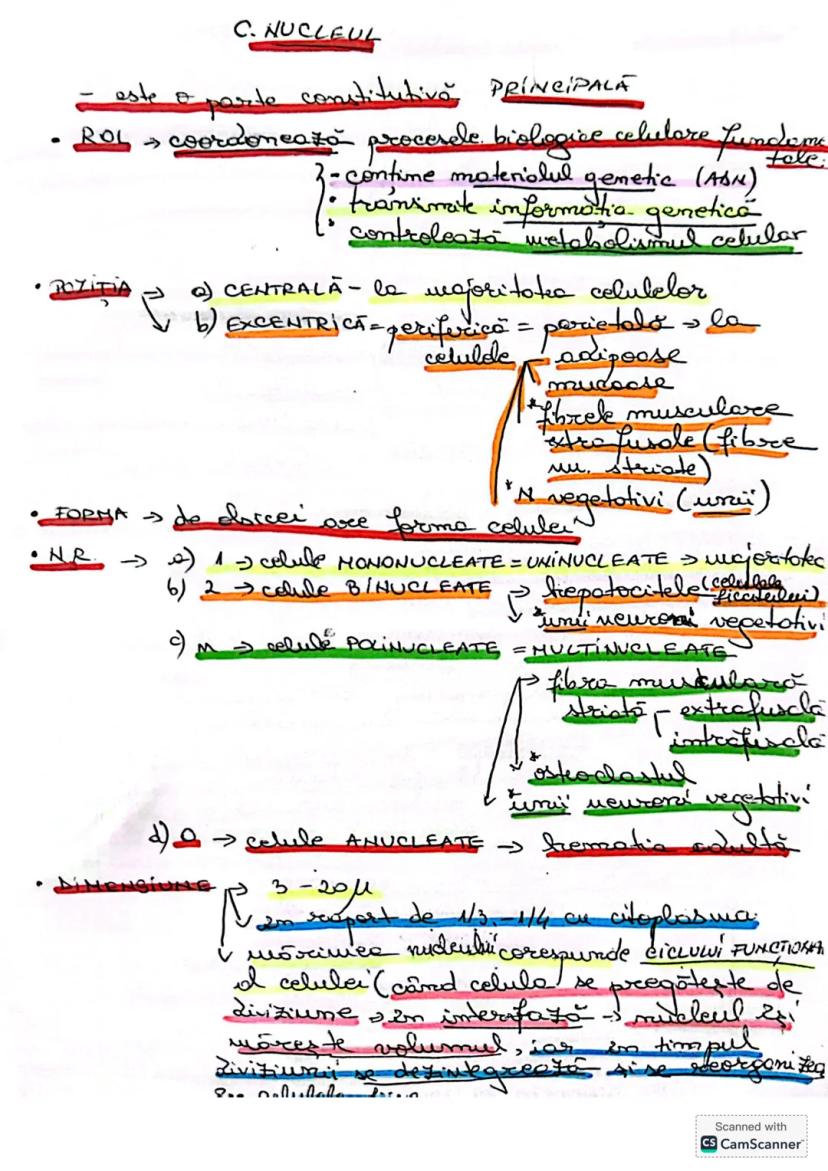 C. NUCLEUL
- este o parte constitutivă PRINCIPALĂ
• ROL → coordonează procesele biologice celulare fundamentale:
- conține materialul genetic (ADN)
• transmite informația genetică
• controlează metabolismul celular
• POZIȚIA → a) CENTRALĂ - la majoritatea celulelor
b) EXCENTRICĂ = periferică = parietală → la
celulele - adipoase
mucoase
* fibrele musculare
extrafusale (fibre
m. striate)
* N vegetativi (unii)
• FORMA → de obicei are forma celulei
• NR. → a) 1 → celule MONONUCLEATE = UNINUCLEATE → majoritatea
b) 2 → celule BINUCLEATE → hepatocitele (celulele ficatului)
* unii neuroni vegetativi
c) M → celule POLINUCLEATE = MULTINUCLEATE
→ fibra musculară
striată - extrafusală
intrafusală
* osteoclastul
* unii neuroni vegetativi
d) 0 → celule ANUCLEATE → hematia adultă
• DIMENSIUNE → 3 - 20 μ
în raport de 1/3 - 1/4 cu citoplasma
mărimea nucleului corespunde CICLULUI FUNCȚIONAL
al celulei (când celula se pregătește de
diviziune → în interfază → nucleul își
mărește volumul, iar în timpul
diviziunii se dezintegrează și se reorganizea
Scanned with
CS CamScanner